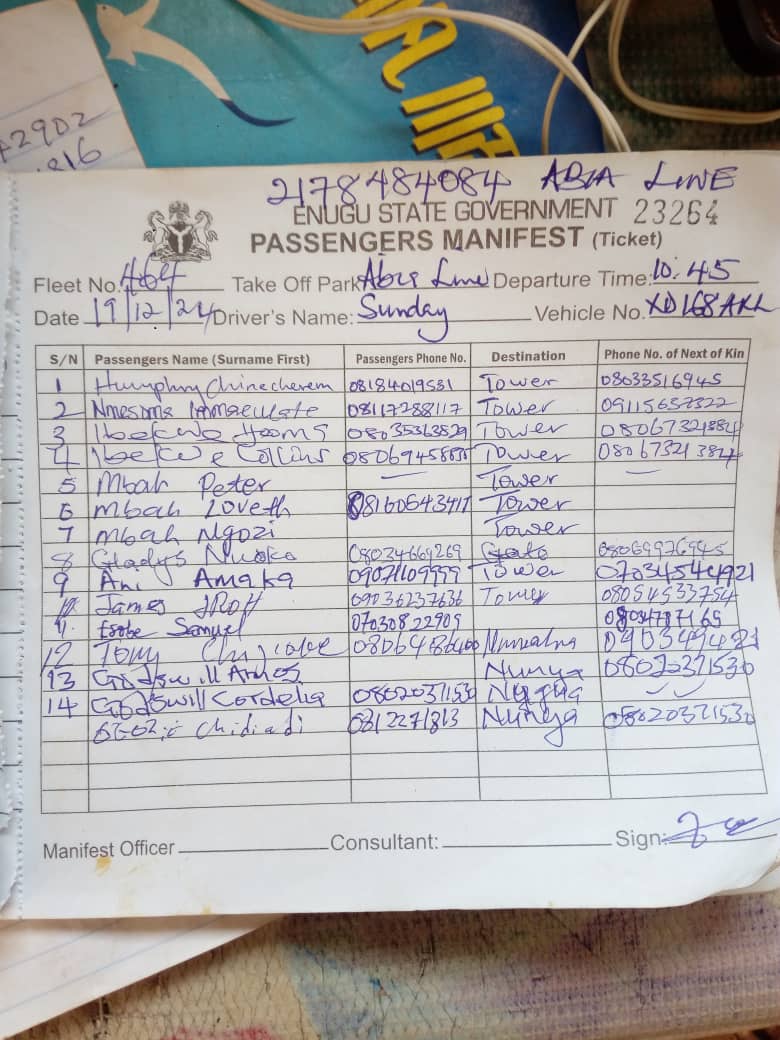 2902
816
2178484084 ABIA LINE
ENUGU STATE GOVERNMENT 23264
PASSENGERS MANIFEST (Ticket)
Fleet No. 464 Take Off Park Abia Line Departure Time: 10:45
Date 19/12/24 Driver's Name: Sunday Vehicle No. XD168AKL
S/N Passengers Name (Surname First) Passengers Phone No. Destination Phone No. of Next of Kin
1 Humphry Chinecherem 08184019531 Tower 08033516945
2 Nmesoma Immaculate 08117288117 Tower 09115637322
3 Ibekwe Tower
4 Ibekwe Collins Tower
5 Mbah Peter Tower
6 Mbah Loveth 08160543417 Tower
7 Mbah Ngozi Tower
8 Gladys 08034669269 08069976945
9 Ani Amaka 09071109999 Tower
10 James 09036237636 Tower 08054533754
11. Samuel 07030822909
12 Tony
13 Godswill Nunya 08020371530
14 Godswill Cordelia 08020371530
Chidiadi 0812271813 Nunya 08020371530
Manifest Officer Consultant: Sign: